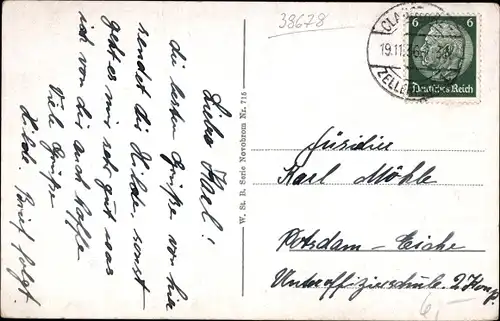 Lieber Karl!
die besten Grüße von hier
sendet dir Hilde, sonst
geht es mir sehr gut was
ich von dir auch hoffe
Viele Grüße
Hilde. Brief folgt.
W. St. B. Serie Novobrom Nr. 715
38678
CLAUS
19.11.36
ZELLE
6 6
Deutsches Reich
Füsilier
Karl Möhle
Potsdam-Eiche
Unteroffizierschule 2 Komp.
6,-